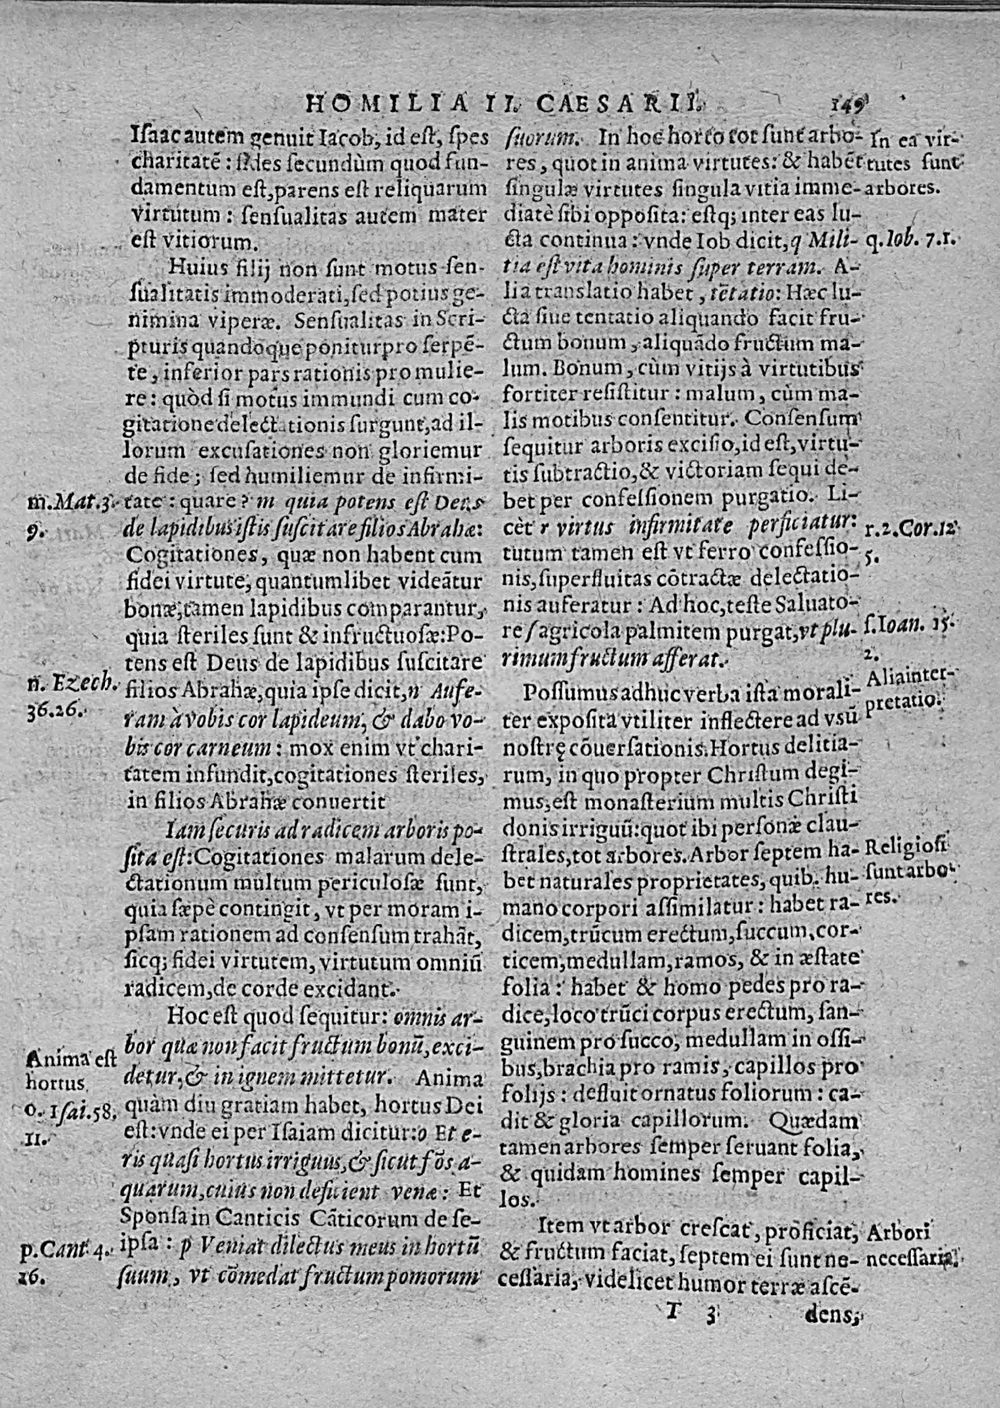 HOMILIA II. CAESARII. 149
Isaac autem genuit Iacob, id est, spes
charitatē: fides secundùm quod fun-
damentum est, parens est reliquarum
virtutum: sensualitas autem mater
est vitiorum.
Huius filij non sunt motus sen-
sualitatis immoderati, sed potius ge-
nimina viperæ. Sensualitas in Scri-
pturis quandoque ponitur pro serpē-
te, inferior pars rationis pro mulie-
re: quòd si motus immundi cum co-
gitatione delectationis surgunt, ad il-
lorum excusationes non gloriemur
de fide; sed humiliemur de infirmi-
m. Mat. 3. tate: quare? m quia potens est Deus
9. de lapidibus istis suscitare filios Abrahæ:
Cogitationes, quæ non habent cum
fidei virtute, quantumlibet videātur
bonæ, tamen lapidibus comparantur,
quia steriles sunt & infructuosæ: Po-
tens est Deus de lapidibus suscitare
n. Ezech. filios Abrahæ, quia ipse dicit, n Aufe-
36.26. ram à vobis cor lapideum, & dabo vo-
bis cor carneum: mox enim vt chari-
tatem infundit, cogitationes steriles,
in filios Abrahæ conuertit
Iam securis ad radicem arboris po-
sita est: Cogitationes malarum dele-
ctationum multum periculosæ sunt,
quia sæpè contingit, vt per moram i-
psam rationem ad consensum trahāt,
sicq; fidei virtutem, virtutum omniū
radicem, de corde excidant.
Hoc est quod sequitur: omnis ar-
bor quæ non facit fructum bonū, exci-
Anima est detur, & in ignem mittetur. Anima
hortus
o. Isai. 58. quàm diu gratiam habet, hortus Dei
11. est: vnde ei per Isaiam dicitur: o Et e-
ris quasi hortus irriguus, & sicut fōs a-
quarum, cuius non deficient venæ: Et
Sponsa in Canticis Cāticorum de se-
p. Cant. 4. ipsa: p Veniat dilectus meus in hortū
16. suum, vt cōmedat fructum pomorum
suorum. In hoc horto tot sunt arbo- In ea vir-
res, quot in anima virtutes: & habēt tutes sunt
singulæ virtutes singula vitia imme- arbores.
diatè sibi opposita: estq; inter eas lu-
cta continua: vnde Iob dicit, q Mili- q. Iob. 7.1.
tia est vita hominis super terram. A-
lia translatio habet, tētatio: Hæc lu-
cta siue tentatio aliquando facit fru-
ctum bonum, aliquādo fructum ma-
lum. Bonum, cùm vitijs à virtutibus
fortiter resistitur: malum, cùm ma-
lis motibus consentitur. Consensum
sequitur arboris excisio, id est, virtu-
tis subtractio, & victoriam sequi de-
bet per confessionem purgatio. Li-
cèt r virtus infirmitate perficiatur: r. 2. Cor. 12
tutum tamen est vt ferro confessio- 5.
nis, superfluitas cōtractæ delectatio-
nis auferatur: Ad hoc, teste Saluato-
re s agricola palmitem purgat, vt plu- s. Ioan. 15.
rimum fructum afferat. 2.
Possumus adhuc verba ista morali- Alia inter-
ter exposita vtiliter inflectere ad vsū pretatio.
nostrę cōuersationis. Hortus delitia-
rum, in quo propter Christum degi-
mus, est monasterium multis Christi
donis irriguū: quot ibi personæ clau-
strales, tot arbores. Arbor septem ha- Religiosi
bet naturales proprietates, quib. hu- sunt arbo-
mano corpori assimilatur: habet ra- res.
dicem, trūcum erectum, succum, cor-
ticem, medullam, ramos, & in æstate
folia: habet & homo pedes pro ra-
dice, loco trūci corpus erectum, san-
guinem pro succo, medullam in ossi-
bus, brachia pro ramis, capillos pro
folijs: defluit ornatus foliorum: ca-
dit & gloria capillorum. Quædam
tamen arbores semper seruant folia,
& quidam homines semper capil-
los.
Item vt arbor crescat, proficiat, Arbori
& fructum faciat, septem ei sunt ne- necessaria.
cessaria, videlicet humor terræ ascē-
T 3 dens,